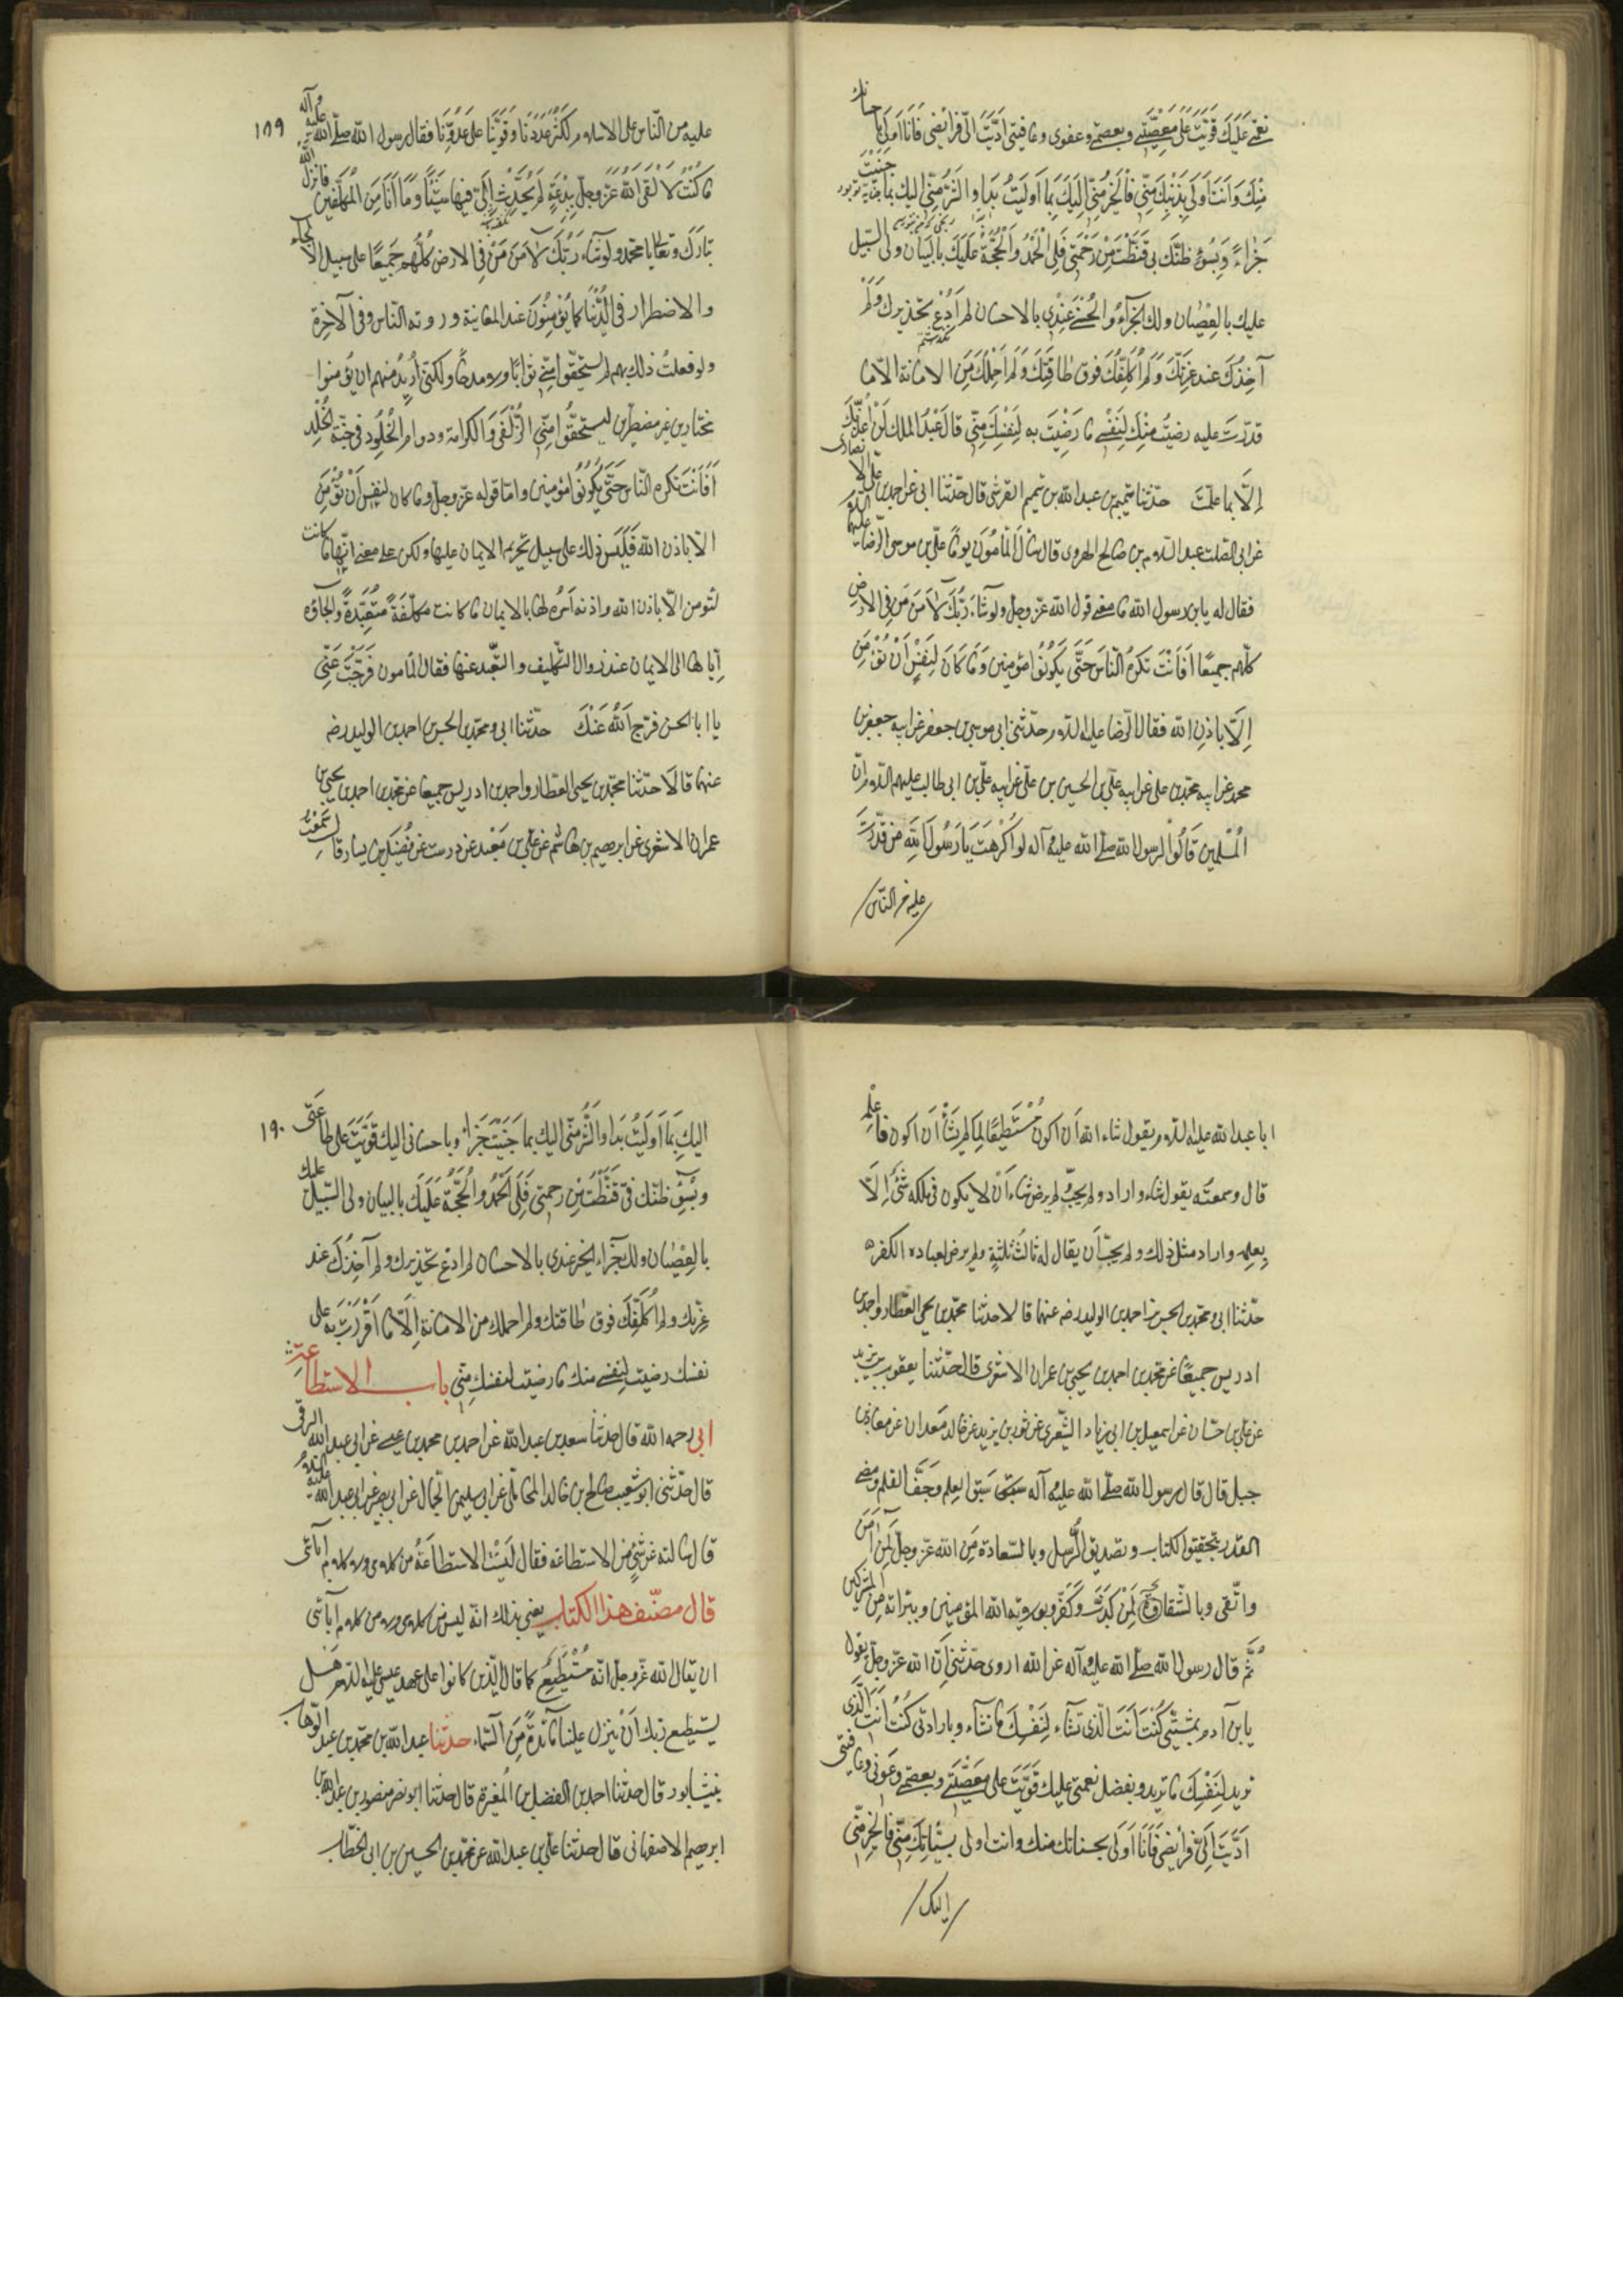 نعمتي عَلَيكَ قَوَّيْتَ عَلَى مَعْصِيَتي وبعصمتي وعفوي وعافيتي ادَّيتَ الىّ فرائضي فَانَا اَولى باحسانك
مِنْكَ وَاَنتَ اَولَى بِذَنْبِكَ مِنّي فَالخَيْرُ مِنّي اِلَيكَ بِمَا اَولَيتُ بَدَا والشَّرُّ مِنّي اليك بما جَنَيْتَ
جَزاءً وَبِسُوءِ ظَنّك بي قَنَطْتَ مِنْ رَحْمَتي فَلِيَ الْحَمْدُ والْحُجَّةُ عَلَيكَ بالبَيَان ولى السّبيل
عليك بالعِصْيان ولك الجَزَآءُ والحُسْنى عِنْدي بالاحسان لم اَدَعْ تحذيرك وَلَمْ
آخذْكَ عند غِرَّتِكَ وَلَمْ اُكَلِّفْكَ فوق طاقَتِكَ وَلَم اَحْمِلْكَ مِنَ الامانة الّا ما
قدرْتَ عليه رضيتُ مِنْكَ لِنَفْسى ما رَضِيْتَ به لِنَفْسِكَ مِنّى قالَ عَبْدُ الملك لَنْ اُعَذِّبَكَ
اِلّا بما عَلِمْتَ حدّثنا تميم بن عبد الله بن تميم القرشى قال حدّثنا ابى عن احمد بن علىّ الانصارى
عن ابى الصّلت عبد السّلام بن صالح الهروى قال سَأَلَ الْمَأمُونُ يومًا علىّ بن موسى الرّضا عليهما السّلام
فقال له يابن رسول الله ما معنى قول الله عزّ وجلّ ولو شآءَ رَبُّكَ لآمَنَ مَن فِى الارض
كلّهم جميعًا اَفَاَنْتَ تكرهُ النّاسَ حَتّى يَكُونُوا مؤمنين وَمَا كَانَ لِنَفْسٍ اَنْ تُؤْمِنَ
اِلّا باذنِ الله فقال الرّضا عليه السّلام حدّثنى ابى موسى بن جعفر عن ابيه جعفر بن
محمد عن ابيه محمّد بن على عن ابيه علىّ بن الحسين عن ابيه الحسين بن علىّ عن ابيه علىّ بن ابى طالب عليهم السّلام انّ
المُسْلمين قَالُوا لرسول الله صلّى الله عليه وآله لو اكْرَهْتَ يَا رَسُولَ اللهِ من قَدَرْتَ
عليه من النّاس
١٨٩
عليه من النّاس على الاسلام لكَثُرَ عَدَدُنَا وَقَوّيْنَا على عَدُوِّنَا فقال رسول الله صلّى الله عليه وآله
ما كُنْتُ لاَلْقَى اللهَ عَزّ وجلّ بِبِدْعَةٍ لَم يُحَدِّثْ اِلَىَّ فيها شَيْئًا وَمَا اَنَا مِنَ الْمُتَكَلّفين فانزل الله
تَبَارَكَ وتَعَالى يا محمد ولو شآء رَبُّكَ لآمَنَ مَنْ فِى الارض كُلُّهُم جَمِيعًا على سبيل الالجاء
والاضطرار فى الدُّنْيَا كما يُؤمِنُونَ عند المعَاينة ورؤية النّاس وفى الآخِرَة
ولو فعلتُ ذلك بهم لم يستحقّوا مِنّى ثوابًا ولا مدحًا ولكنّى اُرِيدُ منهم ان يُؤمنوا
مختارين غير مضطرّين ليستحقُّوا مِنّى الزُّلْفَى وَالكرامة ودوام الخُلُود فى جَنّةِ الخُلد
اَفَاَنْتَ تكره النّاس حَتّى يَكُونُوا مؤمنين وامّا قوله عزّ وجلّ وما كان لنفسٍ اَنْ تُؤْمِنَ
الّا باذن الله فَلَيْسَ ذلك على سبيل تحريم الايمان عليها ولكن على معنى انّها ما كانت
لتؤمن الّا باذن الله واذنه اَمرُه لها بالايمان ما كانت مكلّفَةً مُتَعَبِّدةً والجاؤه
اِيّاها الى الايمان عند زوال التّكليف والتّعبّد عنها فقال المأمون فَرَّجْتَ عَنّى
يا ابا الحسن فرّج اللهُ عَنْكَ حدّثنا ابى ومحمّد بن الحسن بن احمد بن الوليد رضه
عنهما قالَا حدّثنا محمّد بن يحيى العَطّار واحمد بن ادريس جميعًا عن محمّد بن احمد بن يحيى بن
عمران الاشعرى عن ابرهيم بن هاشم عن علىّ بن مَعْبَد عن درست عن فُضَيْل بن يسار قال سَمِعْتُ
ابا عبد الله عليه السّلام يقول شاء الله اَن اكونَ مُسْتَطِيعًا لِما لَم يَشَأْ اَن اكون فاعِلَهُ
قال وسمعتُه يقول شاء واراد ولم يحبّ ولم يرضَ شاء اَنْ لا يكون فى ملكه شئٌ اِلّا
بِعِلمِه واراد مثل ذلك ولم يحبّ اَن يقال له ثالثُ ثلثةٍ ولم يرض لعباده الكفر
حدّثنا ابى ومحمّد بن الحسن بن احمد بن الوليد رضه عنهما قالا حدثنا محمّد بن يحيى العَطّار واحمد بن
ادريس جميعًا عن محمّد بن احمد بن يحيى بن عمران الاشعرى قال حدّثنا يعقوب بن يزيد
عن علىّ بن حَسّان عن اسمعيل بن ابى زياد الشّعيرى عن ثور بن يزيد عن خالد بن مَعدان عن معاذ بن
جبل قال قال رسول الله صلّى الله عليه وآله سَبَقَ العِلم وَجَفَّ القلم ومضى
القدر بتحقيق الكتاب وتصديق الرُّسل وبالسّعادة مِنَ الله عزّ وجلّ لِمَن آمَنَ
واتّقى وبالشّقاءِ لِمَنْ كَذَّبَ وكَفَرَ وبولاية الله المؤمنين وببرائته مِنَ المشركين
ثُمَّ قال رسول الله صلّى الله عليه وآله عن الله اروى حديثى اَنّ الله عزّ وجلّ يقول
يابن آدم بمشيَّتى كُنْتَ اَنْتَ الّذى تشآء لِنَفْسِكَ ما تشآء وبارادتى كُنْتَ اَنتَ الّذى
تريد لِنَفْسِكَ ما تريد وبفضل نعمتى عليك قَوَّيْتَ على مَعْصِيَتى وبعصمتى وعَونى وعافيتى
اَدَّيْتَ اِلَىّ فرايضى فَاَنَا اَوْلى بحسناتك منك وانت اولى بسَيّئاتِكَ مِنّى فالخير مِنّى
اليك
١٩٠
اليكِ بمَا اَولَيتُ بَدا والشَّرُّ مِنّى اليك بما جَنَيْتَ جَزاءً وباحسانى اليك قَوَّيْتَ على طاعَتى
وبسُوءِ ظنّك بى قَنَطْتَ مِنْ رحمتى فَلِىَ الْحَمْدُ والْحُجّةُ عَلَيكَ بالبيان ولى السّبيل عليك
بالعِصْيان ولك جَزاء الخير عندى بالاحسان لم ادَعْ تحذيرك ولم آخِذْكَ عند
غِرّتك ولم اُكَلِّفْكَ فوق طاقتك ولم احملك من الامانة اِلّا ما اَقْرَرْتَ به على
نفسك رضيت لِنفسى منك ما رضيت لنفسك مِنّى باب الاستطاعة
ابى رحمه الله قال حدثنا سعد بن عبد الله عن احمد بن محمد بن عيسى عن ابى عبد الله البرقى
قال حدّثنى ابو شعيب صالح بن خالد المحاملى عن ابى سليمن الجمّال عن ابى بصير عن ابى عبد الله عليه السّلام
قال سالته عن شىءٍ من الاستطاعة فقال لَيْسَتْ الاستطاعَةُ من كلامى ولا كلام آبائى
قال مصنّف هذا الكتاب يعنى بذلك انّه ليس من كلامى ولا من كلام آبائى
ان يقال لله عزّ وجلّ انّه مُسْتَطِيعٌ كما قال الّذين كانوا على عهد عيسى عليه السّلام هَل
يستَطِيع ربّك اَنْ يُنزل علينا مآئدةً مِنَ السّمآء حدّثنا عبد الله بن محمّد بن عبد الوهاب
بنيشابور قال حدّثنا احمد بن الفضل بن المُغيرة قال حدّثنا ابو نصر منصور بن عبد الله بن
ابرهيم الاصفهانى قال حدثنا علىّ بن عبد الله عن محمّد بن الحسين بن ابى الخطّاب